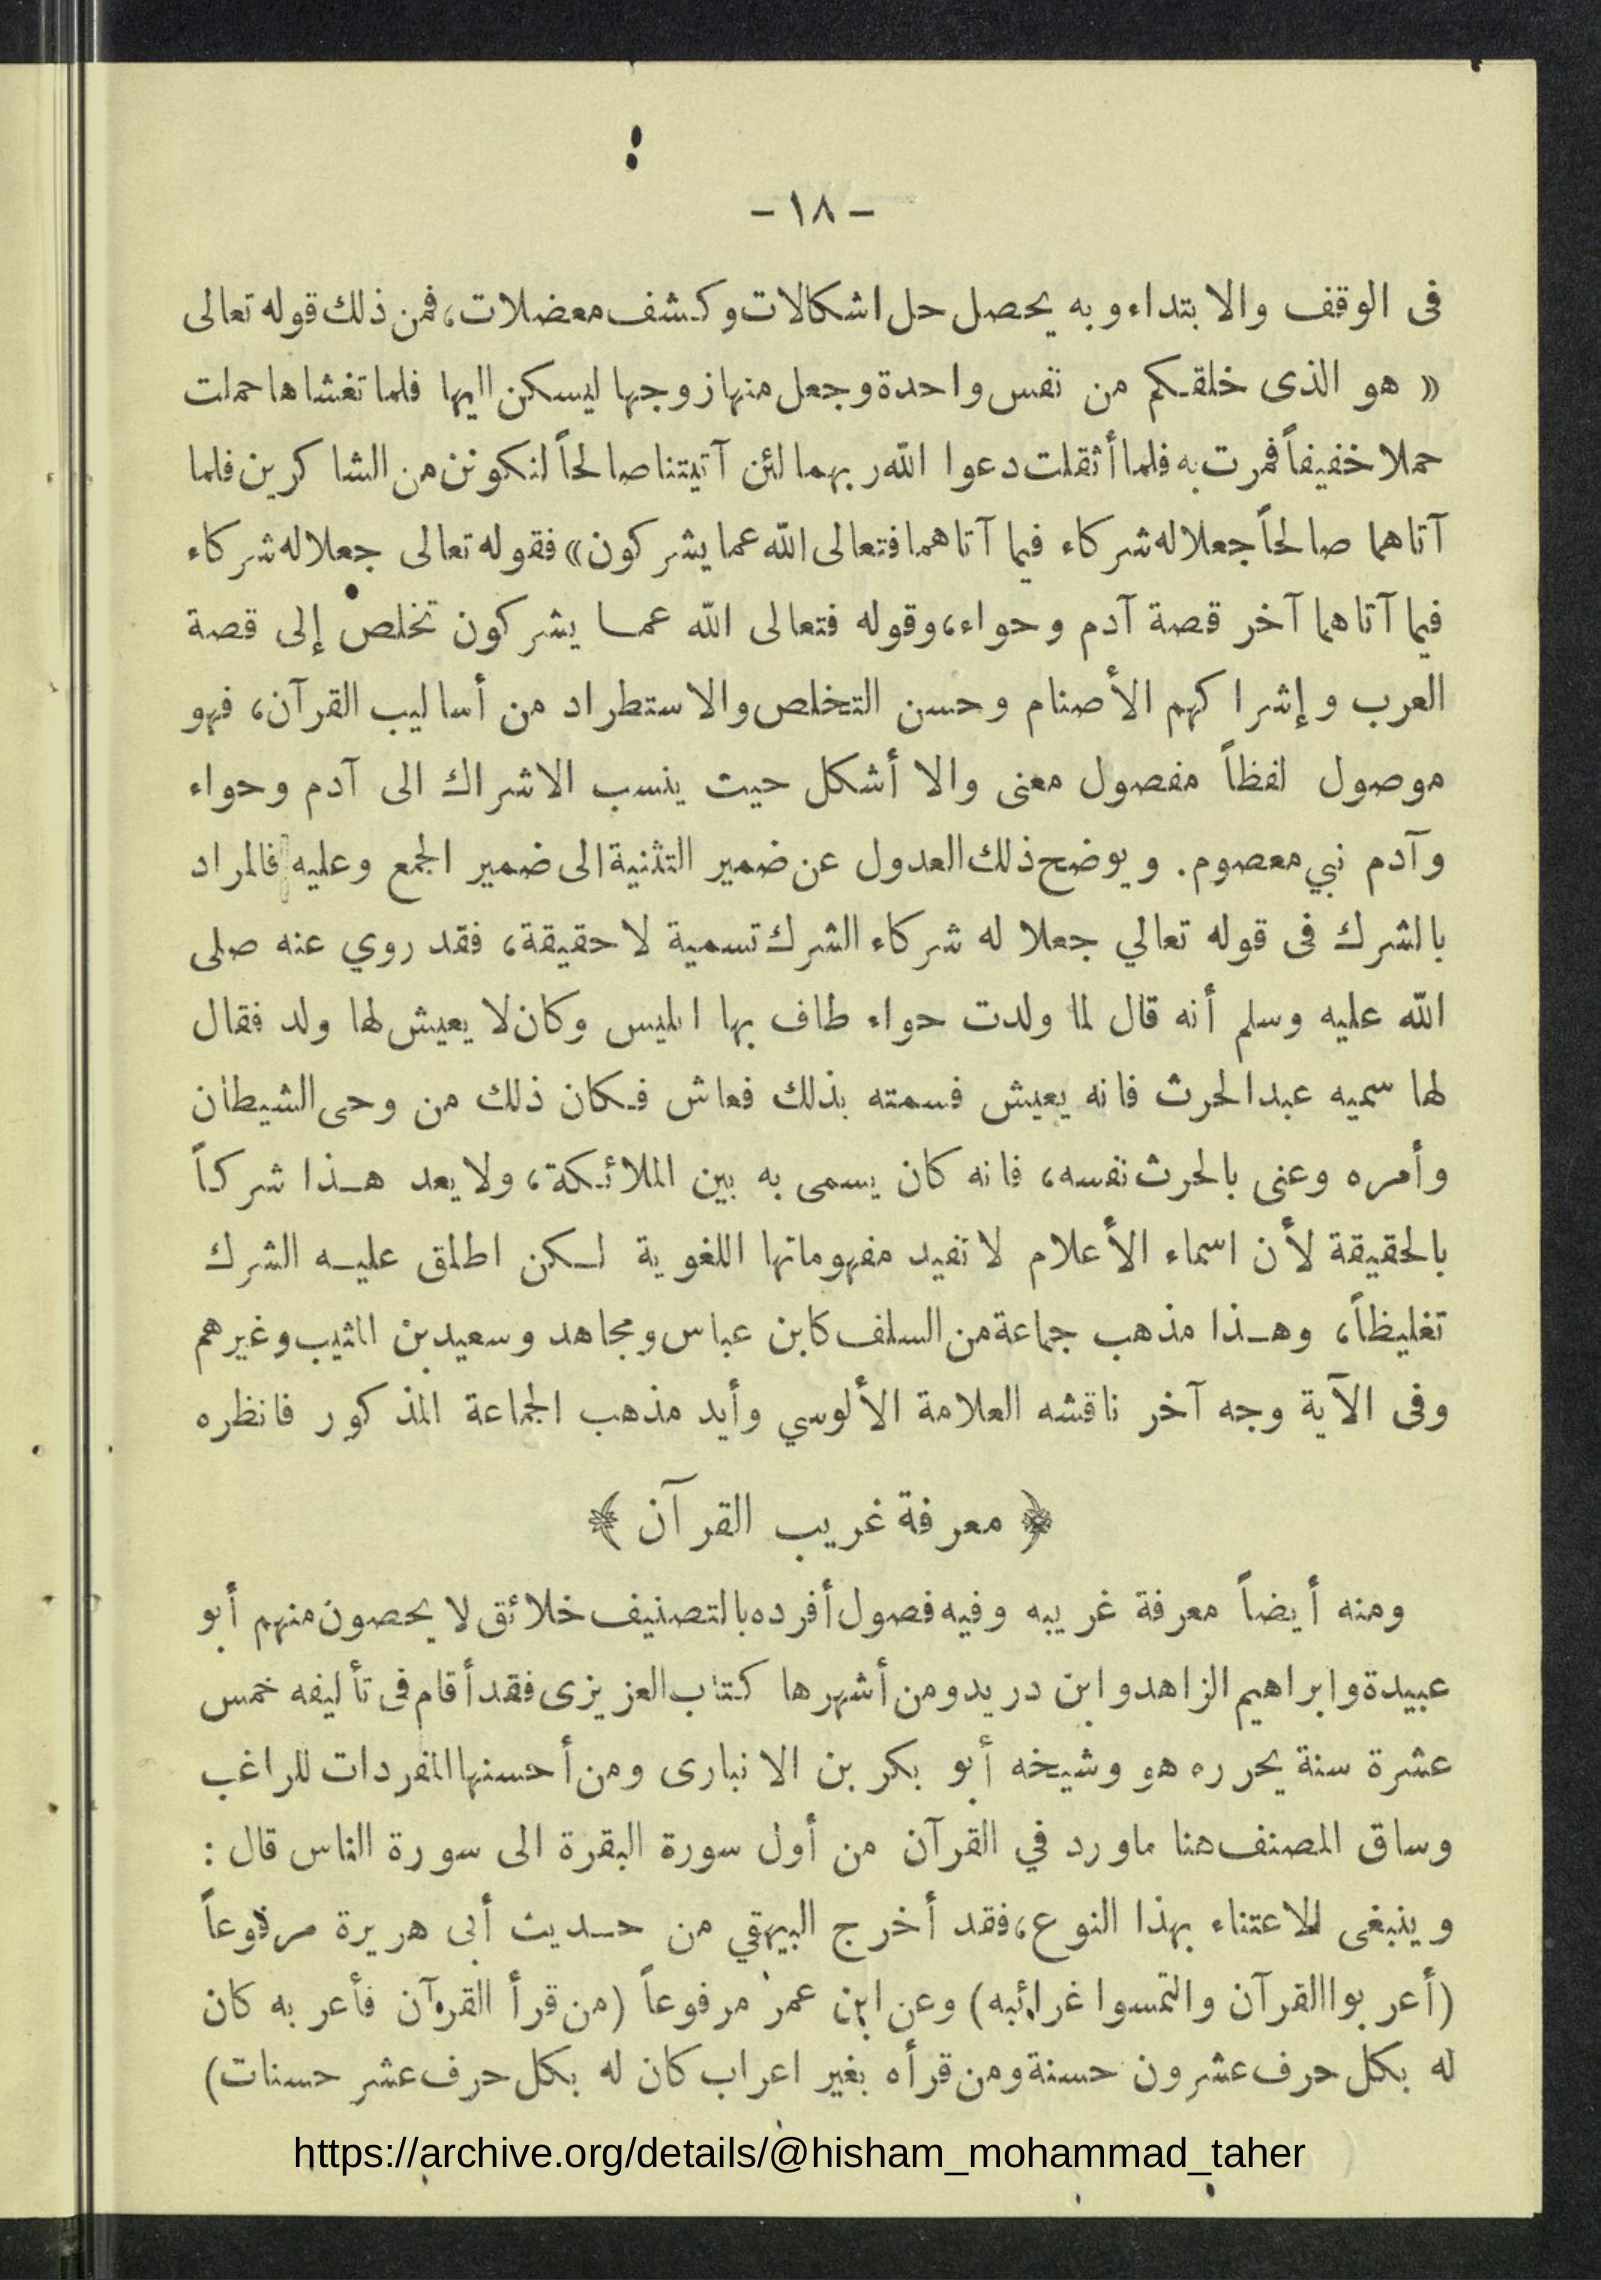 - ١٨ -
فى الوقف والابتداء وبه يحصل حل اشكالات وكشف معضلات، فمن ذلك قوله تعالى
« هو الذى خلقكم من نفس واحدة وجعل منها زوجها ليسكن اليها فلما تغشاها حملت
حملا خفيفاً فمرت به فلما أثقلت دعوا الله ربهما لئن آتيتنا صالحاً لنكونن من الشاكرين فلما
آتاهما صالحاً جعلا له شركاء فيما آتاهما فتعالى الله عما يشركون» فقوله تعالى جعلا له شركاء
فيما آتاهما آخر قصة آدم وحواء، وقوله فتعالى الله عما يشركون تخلص إلى قصة
العرب وإشراكهم الأصنام وحسن التخلص والاستطراد من أساليب القرآن، فهو
موصول لفظاً مفصول معنى والا أشكل حيث ينسب الاشراك الى آدم وحواء
وآدم نبي معصوم. ويوضح ذلك العدول عن ضمير التثنية الى ضمير الجمع وعليه فالمراد
بالشرك فى قوله تعالي جعلا له شركاء الشرك تسمية لا حقيقة، فقد روي عنه صلى
الله عليه وسلم أنه قال لما ولدت حواء طاف بها ابليس وكان لا يعيش لها ولد فقال
لها سميه عبدالحرث فانه يعيش فسمته بذلك فعاش فكان ذلك من وحى الشيطان
وأمره وعنى بالحرث نفسه، فانه كان يسمى به بين الملائكة، ولا يعد هذا شركاً
بالحقيقة لأن اسماء الأعلام لا تفيد مفهوماتها اللغوية لكن اطلق عليه الشرك
تغليظاً، وهذا مذهب جماعة من السلف كابن عباس ومجاهد وسعيد بن المثيب وغيرهم
وفى الآية وجه آخر ناقشه العلامة الألوسي وأيد مذهب الجماعة المذكور فانظره
﴿ معرفة غريب القرآن ﴾
ومنه أيضاً معرفة غريبه وفيه فصول أفرده بالتصنيف خلائق لا يحصون منهم أبو
عبيدة وابراهيم الزاهد وابن دريد ومن أشهرها كتاب العزيزى فقد أقام فى تأليفه خمس
عشرة سنة يحرره هو وشيخه أبو بكر بن الانبارى ومن أحسنها المفردات للراغب
وساق المصنف هنا ماورد في القرآن من أول سورة البقرة الى سورة الناس قال :
وينبغى الاعتناء بهذا النوع، فقد أخرج البيهقي من حديث أبى هريرة مرفوعاً
(أعربوا القرآن والتمسوا غرائبه) وعن ابن عمر مرفوعاً (من قرأ القرآن فأعربه كان
له بكل حرف عشرون حسنة ومن قرأه بغير اعراب كان له بكل حرف عشر حسنات)
https://archive.org/details/@hisham_mohammad_taher